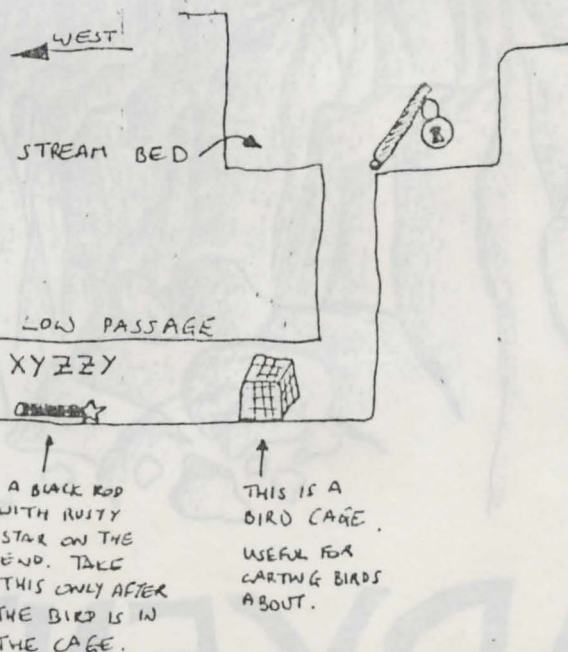 WEST
STREAM BED
LOW PASSAGE
XYZZY
A BLACK ROD
WITH RUSTY
STAR ON THE
END. TAKE
THIS ONLY AFTER
THE BIRD IS IN
THE CAGE.
THIS IS A
BIRD CAGE.
USEFUL FOR
CARTING BIRDS
ABOUT.